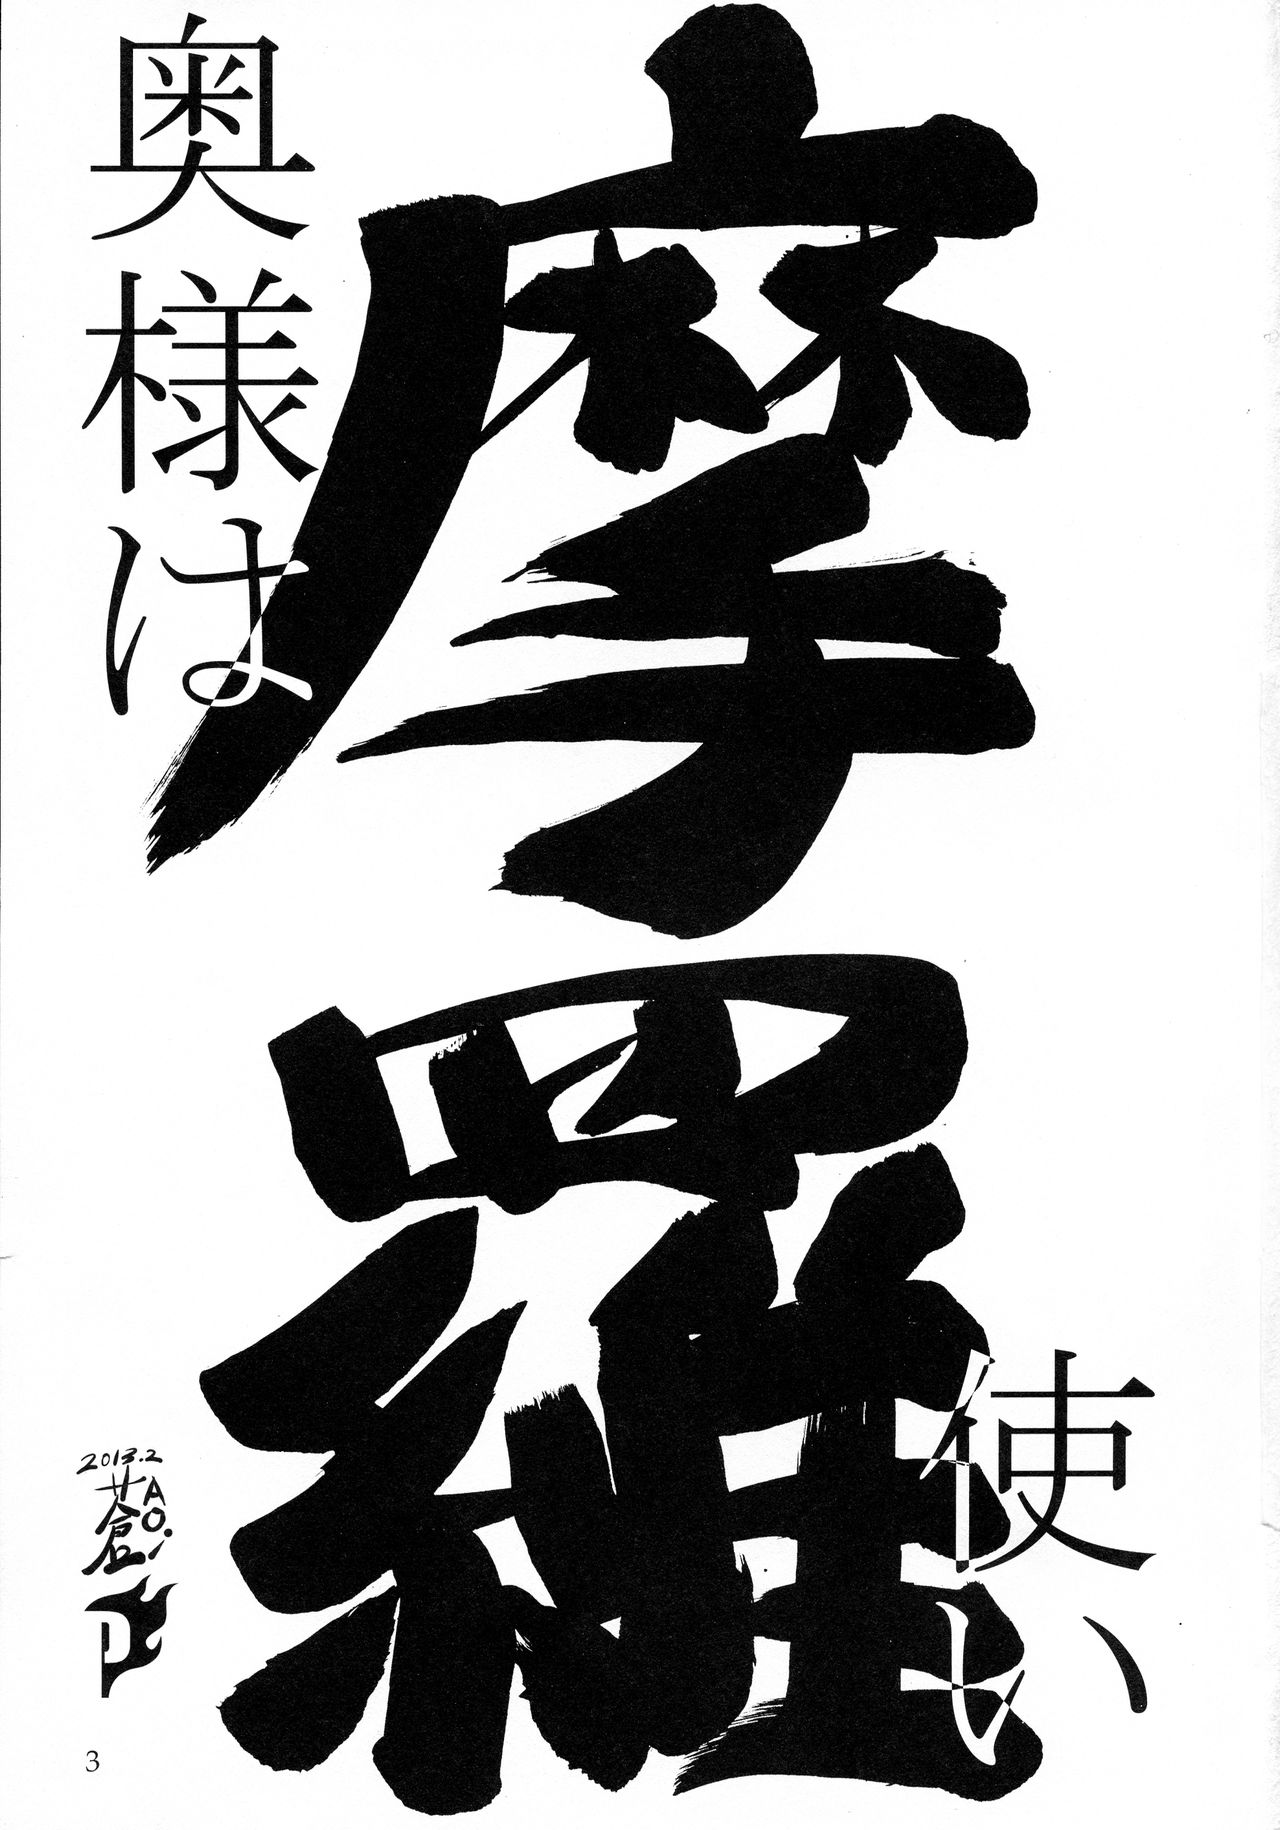 奥様は
摩羅
使い
2013.2
蒼
AOi
P
3